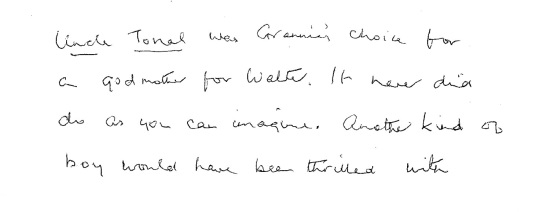 Uncle Tonal was Grannie's choice for
a godmother for Walter. It never did
do as you can imagine. Another kind of
boy would have been thrilled with